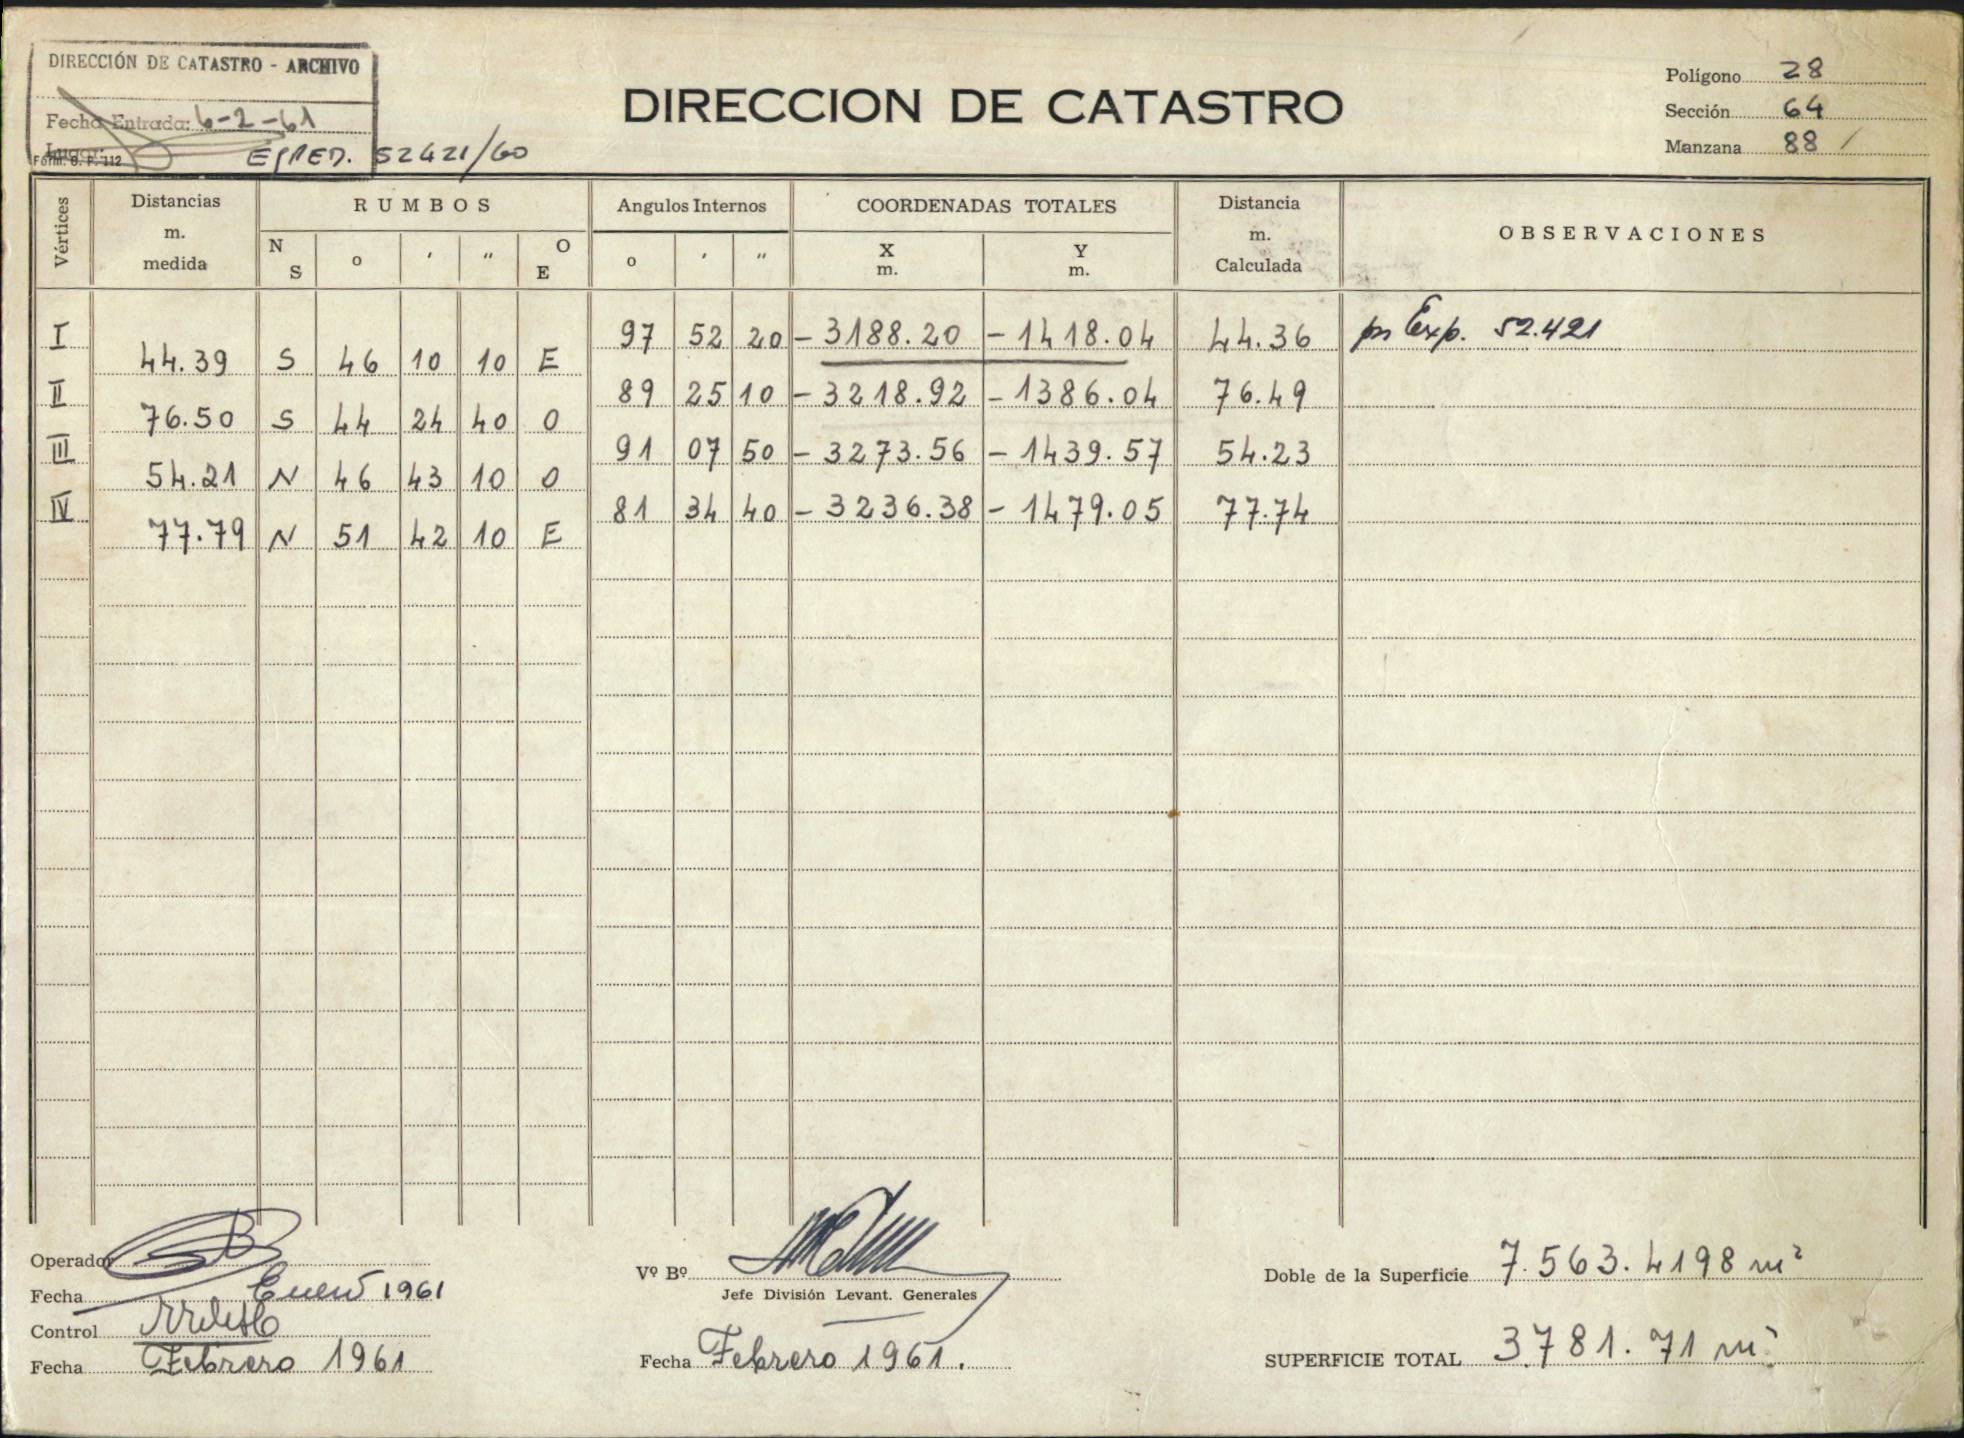 DIRECCIÓN DE CATASTRO - ARCHIVO
Fecha Entrada: 6-2-61
Lugar:
Form. O. P. 112
EXPED. 52421/60
DIRECCION DE CATASTRO
Polígono 28
Sección 64
Manzana 88 /
Vértices
Distancias m. medida
RUMBOS
N S o ′ ″ O E
Angulos Internos
o ′ ″
COORDENADAS TOTALES
X m. Y m.
Distancia m. Calculada
OBSERVACIONES
I 97 52 20 - 3188.20 - 1418.04 44.36 pr Exp. 52.421
44.39 S 46 10 10 E
II 89 25 10 - 3218.92 - 1386.04 76.49
76.50 S 44 24 40 O
III 91 07 50 - 3273.56 - 1439.57 54.23
54.21 N 46 43 10 O
IV 81 34 40 - 3236.38 - 1479.05 77.74
77.79 N 51 42 10 E
Operador
Fecha Enero 1961
Control
Fecha Febrero 1961
Vº Bº
Jefe División Levant. Generales
Fecha Febrero 1961.
Doble de la Superficie 7.563.4198 m²
SUPERFICIE TOTAL 3.781.71 m²